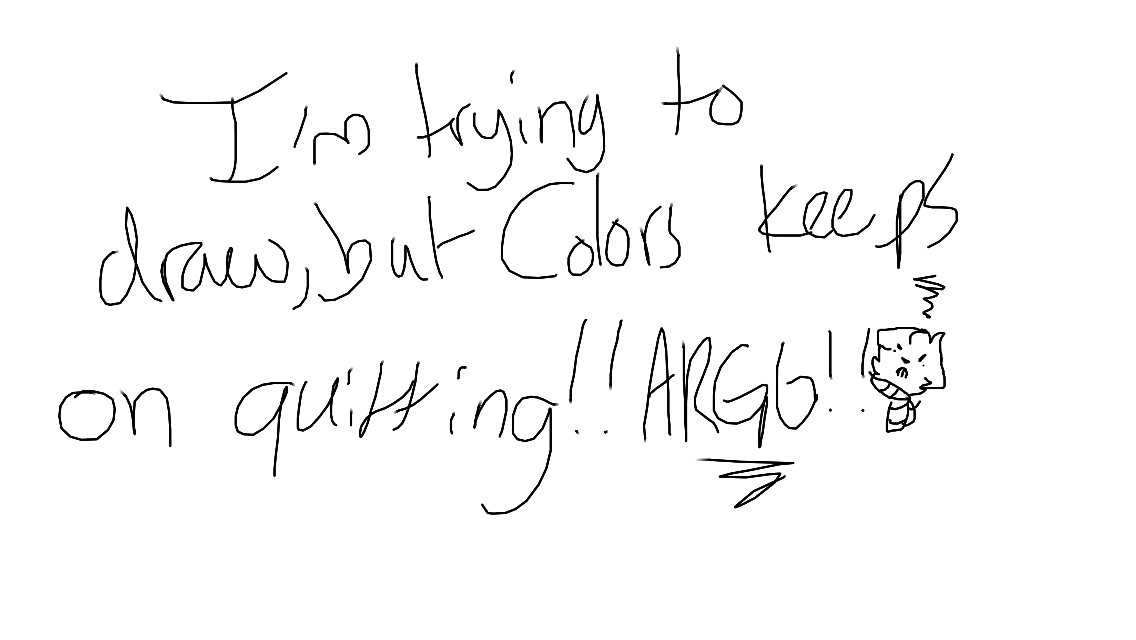 I'm trying to
draw, but Colors keeps
on quitting!! ARGG!!